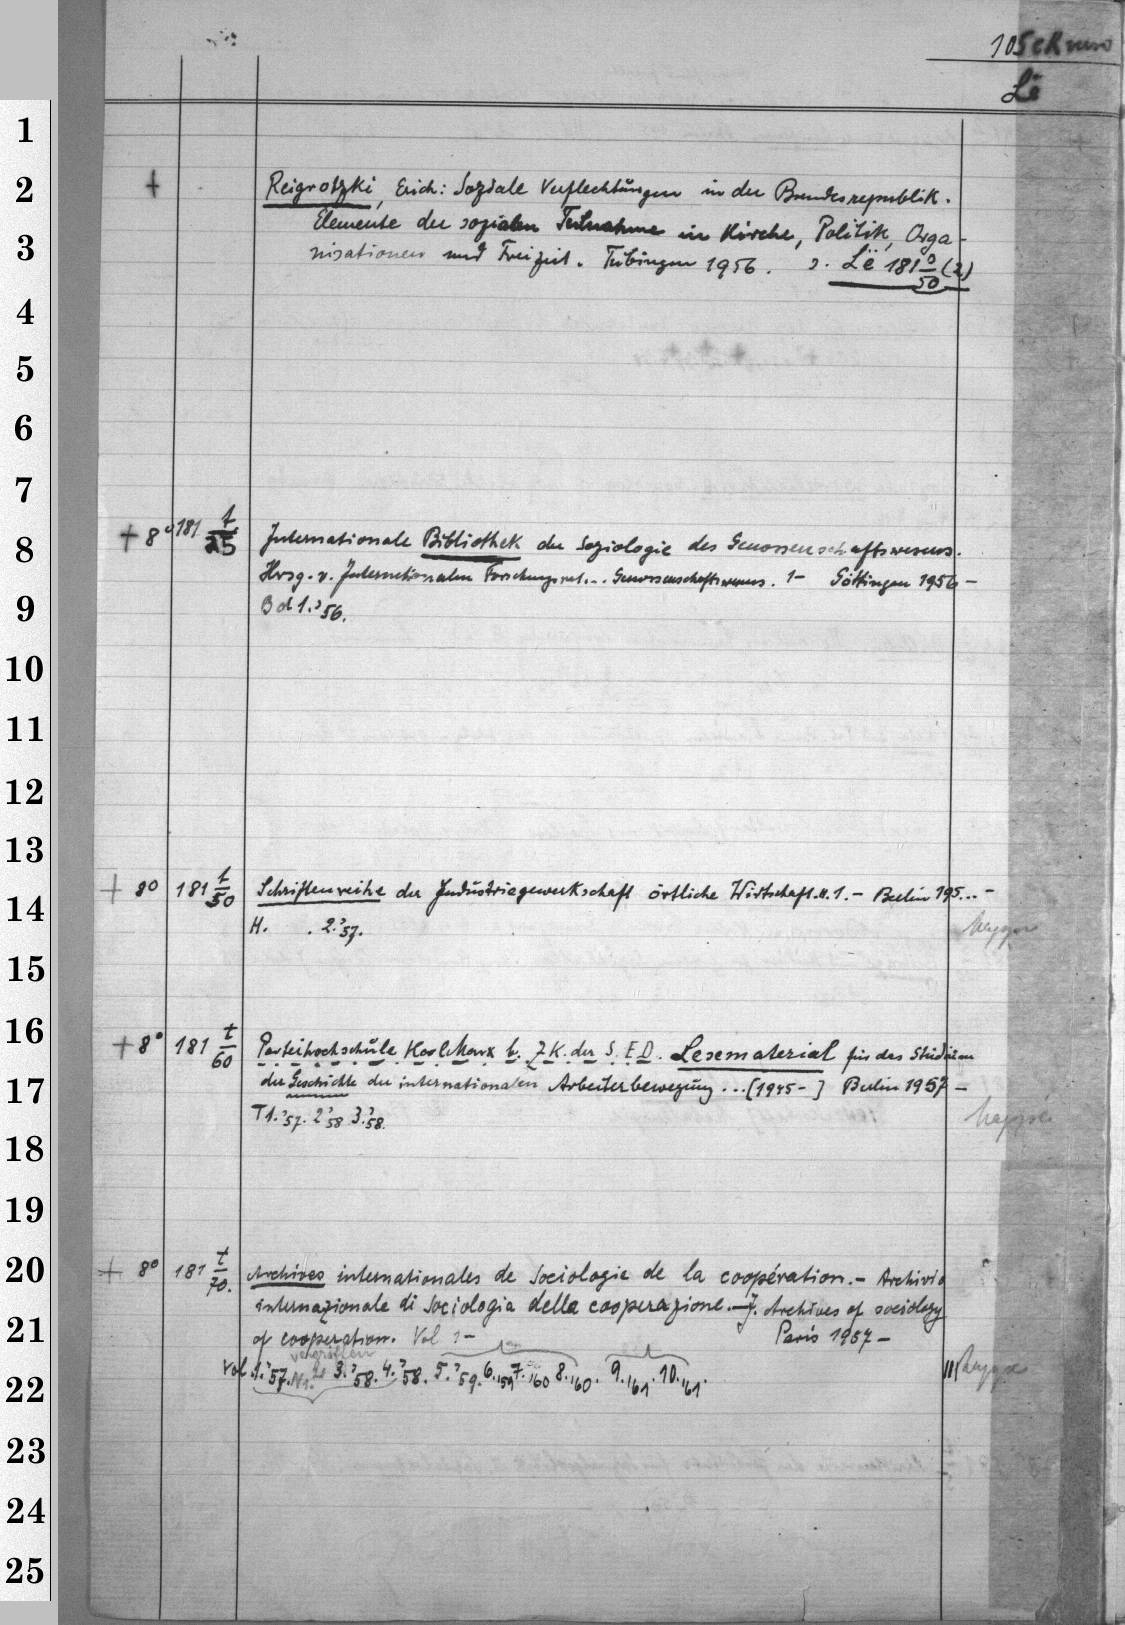 105cR
Lë
1
2
3
4
5
6
7
8
9
10
11
12
13
14
15
16
17
18
19
20
21
22
23
24
25
+ Reigrotzki, Erich: Soziale Verflechtungen in der Bundesrepublik.
Elemente der sozialen Teilnahme in Kirche, Politik, Orga-
nisationen und Freizeit. Tübingen 1956. s. Lë 181 s/50 (2)
+ 8° 181 t/25 Internationale Bibliothek der Soziologie des Genossenschaftswesens.
Hrsg. v. Internationalen Forschungsrat... Genossenschaftswesens. 1- Göttingen 1956-
Bd 1.'56.
+ 8° 181 t/50 Schriftenreihe der Industriegewerkschaft örtliche Wirtschaft. H. 1.- Berlin 195...-
H. . 2.'57.
+ 8° 181 t/60 Parteihochschule Karl Marx b. ZK. der S.E.D. Lesematerial für das Studium
der Geschichte der internationalen Arbeiterbewegung ...[1945- ] Berlin 1957-
T 1.'57. 2'58 3.'58.
+ 8° 181 t/70. Archives internationales de Sociologie de la coopération.- Archivio
internazionale di Sociologia della cooperazione.- J. Archives of sociology
of cooperation. Vol 1- Paris 1957-
vergriffen
Vol. 1.'57. Nr. 2 3.'58. 4.'58. 5.'59. 6.'59 7.'60 8.'60. 9.'61. 10.'61.